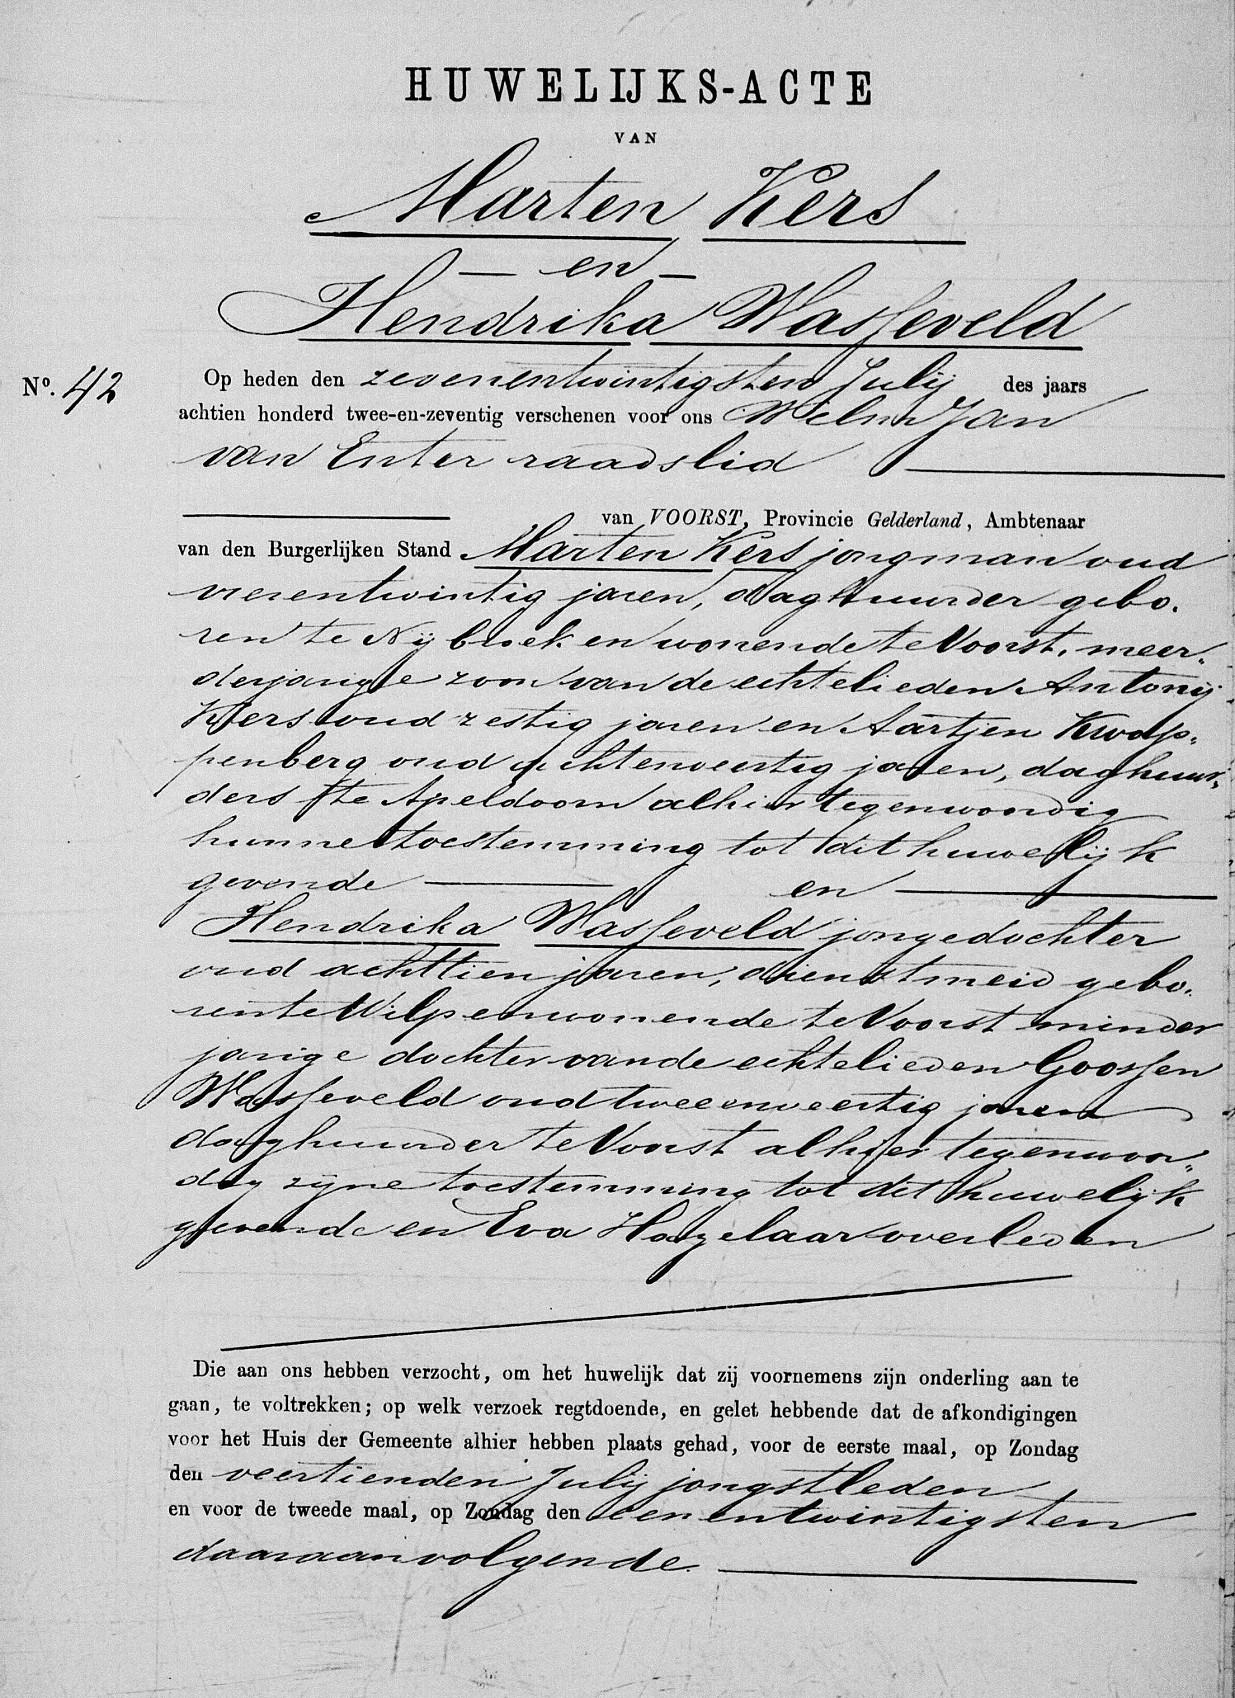 HUWELIJKS-ACTE
VAN
Marten Kers
— en —
Hendrika Wasseveld
Nº. 42
Op heden den zevenentwintigsten Julij des jaars
achtien honderd twee-en-zeventig verschenen voor ons Wilm Jan
van Enter raadslid
van VOORST, Provincie Gelderland, Ambtenaar
van den Burgerlijken Stand Marten Kers jongman oud
vierentwintig jaren, daghuurder gebo.
ren te Nijbroek en wonende te Voorst. meer.
derjarige zoon van de echtelieden Antonij
Kers oud zestig jaren en Aartjen Kwap.
penberg oud achtenveertig jaren, daghuur.
ders te Apeldoorn alhier tegenwoordig
hunne toestemming tot dit huwelijk
gevende — en —
Hendrika Wasseveld jongedochter
oud achttien jaren, dienstmeid gebo.
ren te Wilp en wonende te Voorst minder
jarige dochter van de echtelieden Goossen
Wasseveld oud tweeenveertig jaren
daghuurder te Voorst alhier tegenwoor.
dig zijne toestemming tot dit huwelijk
gevende en Eva Hazelaar overleden
Die aan ons hebben verzocht, om het huwelijk dat zij voornemens zijn onderling aan te
gaan, te voltrekken; op welk verzoek regtdoende, en gelet hebbende dat de afkondigingen
voor het Huis der Gemeente alhier hebben plaats gehad, voor de eerste maal, op Zondag
den veertienden Julij jongstleden
en voor de tweede maal, op Zondag den eenentwintigsten
daaraanvolgende.